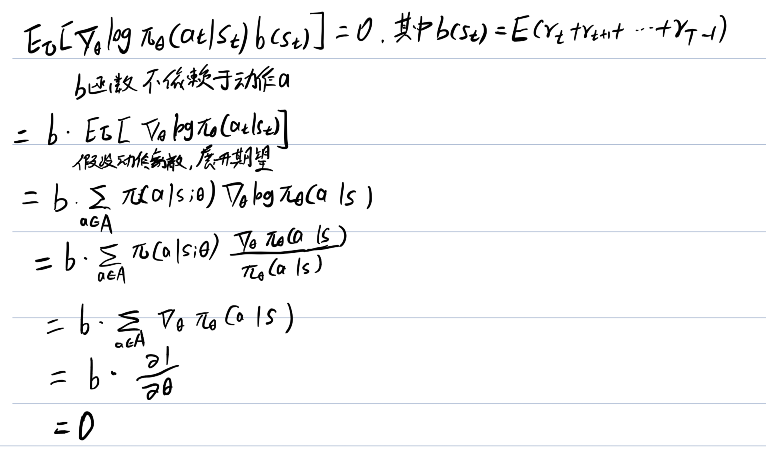 E_τ[∇_θ log π_θ(a_t|s_t) b(s_t)] = 0. 其中 b(s_t) = E(r_t + r_{t+1} + ··· + r_{T-1})
b函数 不依赖于动作a
= b · E_τ[∇_θ log π_θ(a_t|s_t)]
假设动作离散, 展开期望
= b · ∑_{a∈A} π(a|s;θ) ∇_θ log π_θ(a|s)
= b · ∑_{a∈A} π(a|s;θ) \frac{∇_θ π_θ(a|s)}{π_θ(a|s)}
= b · ∑_{a∈A} ∇_θ π_θ(a|s)
= b · \frac{∂1}{∂θ}
= 0